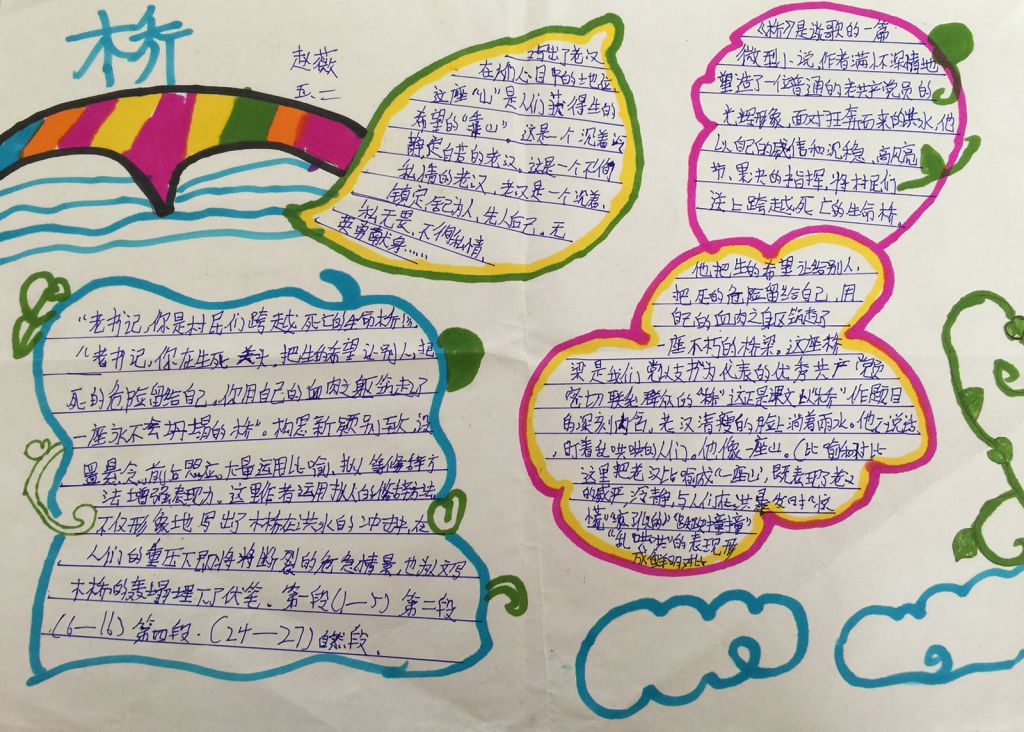 桥
赵薇
五.二
写出了老汉
在人们心目中的地位,
这座“山”是人们获得生的
希望的“靠山”。这是一个沉着冷
静,淡定自若的老汉,这是一个不徇
私情的老汉,老汉是一个沉着、
镇定,舍己为人,先人后己,无
私无畏,不徇私情,
英勇献身……
《桥》是谈歌的一篇
微型小说,作者满怀深情地
塑造了一位普通的老共产党员的
光辉形象,面对狂奔而来的洪水,他
以自己的威信和沉稳、高风亮
节、果决的指挥,将村民们
送上跨越死亡的生命桥。
他把生的希望让给别人,
把死的危险留给自己,用
自己的血肉之躯筑起了
一座不朽的桥梁。这座桥
梁是我们党以支书为代表的优秀共产党员
密切联系群众的“桥”这正是课文以“桥”作题目
的深刻内含。老汉清瘦的脸上淌着雨水。他不说话
,盯着乱哄哄的人们。他像一座山。(比喻和对比
这里把老汉比喻成“一座山”,既表现了老汉
的威严、冷静,与人们在洪暴发时“惊
慌”“疯狂的”“跌跌撞撞”
“乱哄哄”的表现形
成鲜明对比
“老书记,你是村民们跨越死亡的生命桥
“老书记,你在生死关头,把生的希望让别人,把
死的危险留给自己。你用自己的血肉之躯筑起了
一座永不会坍塌的桥”。构思新颖别致,设
置悬念,前后照应,大量运用比喻、拟人等修辞手
法增强表现力。这里作者运用拟人的修辞手法,
不仅形象地写出了木桥在洪水的冲击中,在
人们的重压下即将断裂的危急情景,也为下文写
木桥的轰塌埋下了伏笔。第一段(1—5)第二段
(6—16)第四段.(24—27)自然段.